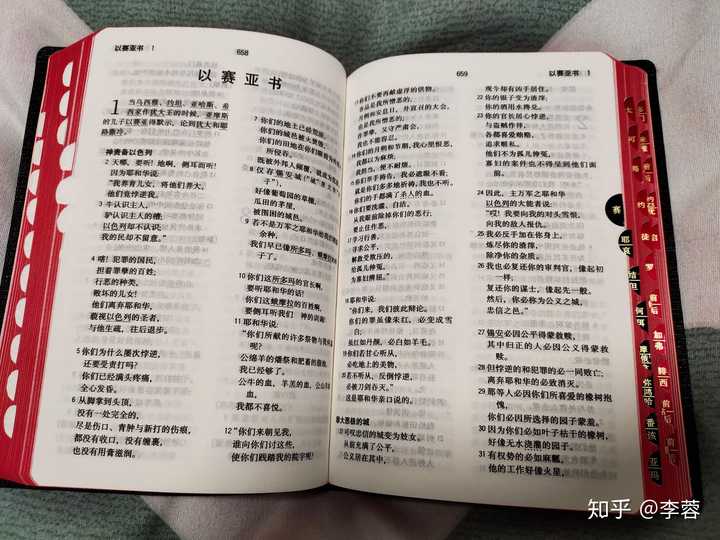 以赛亚书 1
658
以 赛 亚 书
1 当乌西雅、约坦、亚哈斯、希
西家作犹大王的时候,亚摩斯
的儿子以赛亚得默示,论到犹大和耶
路撒冷。
神责备以色列
2 天哪,要听!地啊,侧耳而听!
因为耶和华说:
“我养育儿女,将他们养大,
他们竟悖逆我。
3 牛认识主人,
驴认识主人的槽;
以色列却不认识;
我的民却不留意。”
4 嗐!犯罪的国民,
担着罪孽的百姓;
行恶的种类,
败坏的儿女!
他们离弃耶和华,
藐视以色列的圣者,
与他生疏,往后退步。
5 你们为什么屡次悖逆,
还要受责打吗?
你们已经满头疼痛,
全心发昏。
6 从脚掌到头顶,
没有一处完全的,
尽是伤口、青肿与新打的伤痕,
都没有收口,没有缠裹,
也没有用膏滋润。
7 你们的地土已经荒凉,
你们的城邑被火焚毁,
你们的田地在你们眼前
所侵吞,
既被外邦人倾覆,就成为
8 仅存锡安城
好像葡萄园的草棚,
瓜田的茅屋,
被围困的城邑。
9 若不是万军之耶和华给我们
余种,
我们早已像所多玛、蛾摩拉的
子了。
10 你们这所多玛的官长啊,
要听耶和华的话!
你们这蛾摩拉的百姓啊,
要侧耳听我们 神的训诲!
11 耶和华说:
“你们所献的许多祭物与我何
呢?
公绵羊的燔祭和肥畜的脂油,
我已经够了;
公牛的血,羊羔的血,公山羊
血,
我都不喜悦。
12 “你们来朝见我,
谁向你们讨这些,
使你们践踏我的院宇呢?
659
以赛亚书 1
你们不要再献虚浮的供物。
香品是我所憎恶的;
月朔和安息日,并宣召的大会,
也是我所憎恶的;
作罪孽,又守严肃会,
我也不能容忍。
你们的月朔和节期,我心里恨恶,
我都以为麻烦;
我担当,便不耐烦。
你们举手祷告,我必遮眼不看;
就是你们多多地祈祷,我也不听。
你们的手都满了杀人的血。
你们要洗濯、自洁,
从我眼前除掉你们的恶行;
要止住作恶,
学习行善,
寻求公平,
解救受欺压的,
给孤儿伸冤,
为寡妇辨屈。”
18 耶和华说:
“你们来,我们彼此辩论。
你们的罪虽像朱红,必变成雪
白;
虽红如丹颜,必白如羊毛。
19 你们若甘心听从,
必吃地上的美物,
若不听从,反倒悖逆,
必被刀剑吞灭。”
这是耶和华亲口说的。
罪大恶极的城
可叹忠信的城变为妓女。
从前充满了公平,
公义居在其中,
现今却有凶手居住。
22 你的银子变为渣滓,
你的酒用水搀对。
23 你的官长居心悖逆,
与盗贼作伴,
各都喜爱贿赂,
追求赃私。
他们不为孤儿伸冤,
寡妇的案件也不得呈到他们面
前。
24 因此,主万军之耶和华
以色列的大能者说:
“哎!我要向我的对头雪恨,
向我的敌人报仇。
25 我必反手加在你身上,
炼尽你的渣滓,
除净你的杂质。
26 我也必复还你的审判官,像起初
一样,
复还你的谋士,像起先一般。
然后,你必称为公义之城,
忠信之邑。”
27 锡安必因公平得蒙救赎,
其中归正的人必因公义得蒙救
赎。
28 但悖逆的和犯罪的必一同败亡;
离弃耶和华的必致消灭。
29 那等人必因你们所喜爱的橡树抱
愧,
你们必因所选择的园子蒙羞。
30 因为你们必如叶子枯干的橡树,
好像无水浇灌的园子。
31 有权势的必如麻瓤,
他的工作好像火星,
赛
耶
哀
结
但
何
珥
摩
俄
弥
鸿
哈
番
亚
玛
徒
罗
加
弗
腓
西
知乎 @李蓉